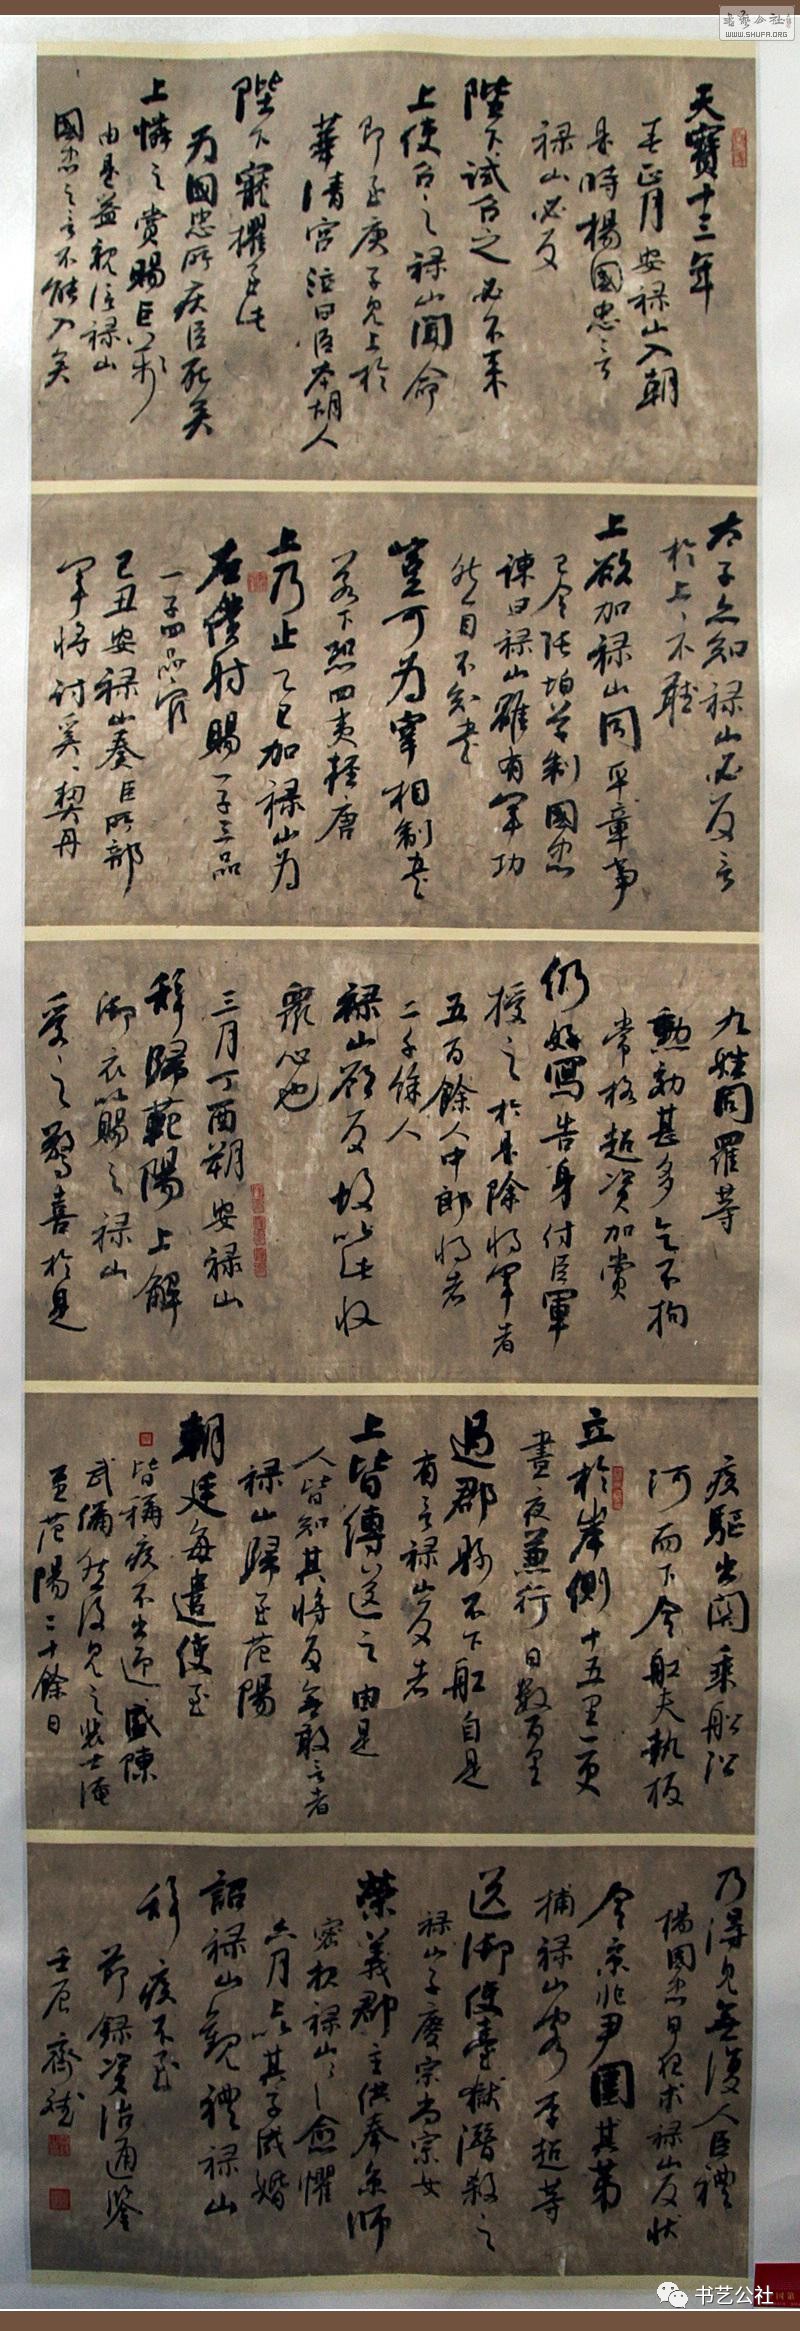 天寶十三年
春正月安祿山入朝
是時楊國忠言
祿山必反
陛下試召之必不來
上使召之祿山聞命
即至庚子見上於
華清宮泣曰臣本胡人
陛下寵擢至此
為國忠所疾臣死矣
上憐之賞賜巨萬
由是益親信祿山
國忠之言不能入矣
太子亦知祿山必反言
於上上不聽
上欲加祿山同平章事
已令張垍草制國忠
諫曰祿山雖有軍功
然目不知書
豈可為宰相制書
若下恐四夷輕唐
上乃止乙巳加祿山為
左僕射賜一子三品
一子四品官
己丑安祿山奏臣所部
軍將討奚契丹
九姓同羅等
勳効甚多乞不拘
常格超資加賞
仍好寫告身付臣軍
授之於是除將軍者
五百餘人中郎將者
二千餘人
祿山欲反故以此收
眾心也
三月丁酉朔安祿山
辭歸範陽上解
御衣以賜之祿山
受之驚喜於是
疾驅出關乘船沿
河而下令船夫執板
立於岸側十五里一更
晝夜兼行日數百里
過郡縣不下船自是
有言祿山反者
上皆縛送之由是
人皆知其將反無敢言者
祿山歸至范陽
朝廷每遣使至
皆稱疾不出迎盛陳
武備然後見之裴士淹
至范陽二十餘日
乃得見無復人臣禮
楊國忠日夜求祿山反狀
令京兆尹圍其第
捕祿山客李超等
送御使臺獄潛殺之
祿山子慶宗尚宗女
榮義郡主供奉京師
密報祿山祿山愈懼
六月上以其子成婚
詔祿山觀禮祿山
辭疾不至
節錄資治通鑒
壬辰齋斌
书艺公社
WWW.SHUFA.ORG
书艺公社